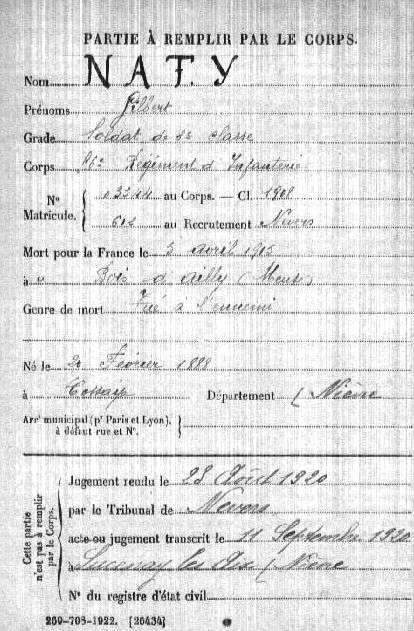 PARTIE À REMPLIR PAR LE CORPS.
Nom NATY
Prénoms Gilbert
Grade Soldat de 2e classe
Corps Régiment d'Infanterie
N° Matricule. { au Corps. — Cl. 1908
au Recrutement Nevers
Mort pour la France le 5 avril 1915
à Bois d'ailly (Meuse)
Genre de mort Tué à l'ennemi
Né le 20 Février 1888
à Département Nièvre
Arrt municipal (pr Paris et Lyon), à défaut rue et N°. }
Cette partie n'est pas à remplir par le Corps.
Jugement rendu le 28 Août 1920
par le Tribunal de Nevers
acte ou jugement transcrit le 11 Septembre 1920
à Lucenay les Aix (Nièvre
N° du registre d'état civil
269-708-1922. [26434]